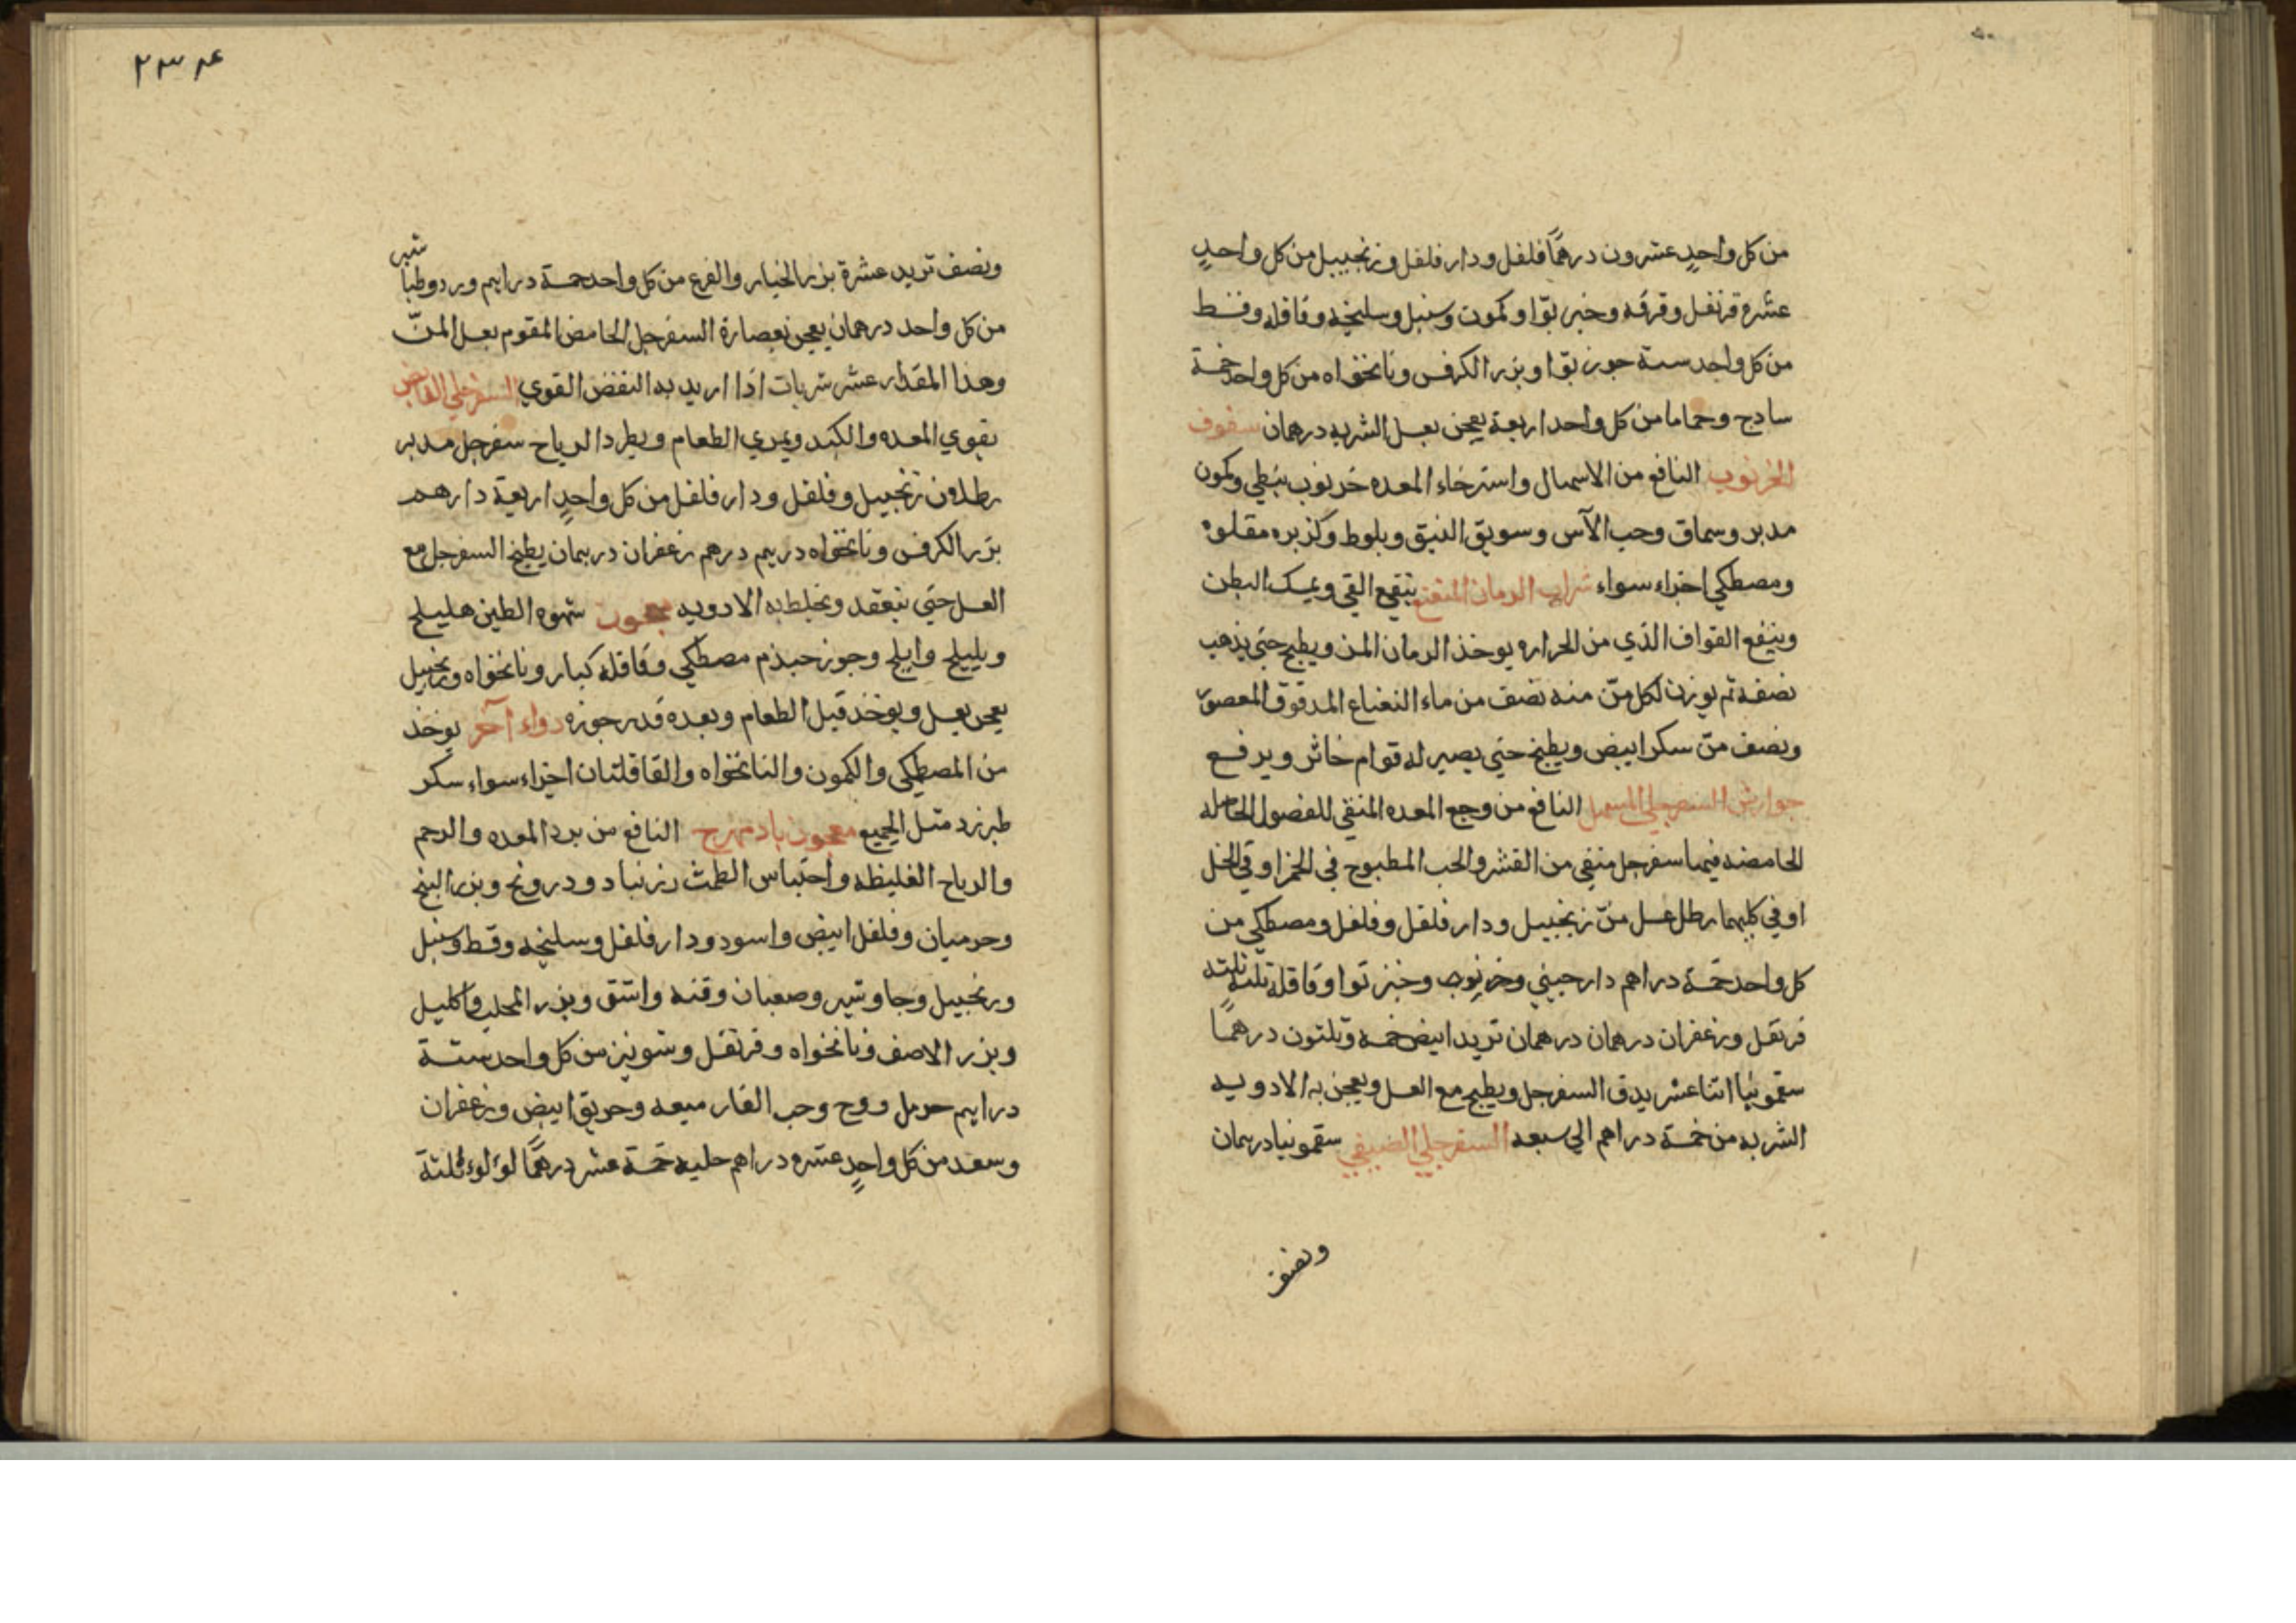 من كل واحدٍ عشرون درهمًا فلفل ودار فلفل وزنجبيل من كل واحدٍ
عشره قرنفل وقرفه وخير بوّا وكمون وسنبل وسليخه وقاقله وقسط
من كل واحد ستة جوز بوّا وبزر الكرفس ونانخواه من كل واحد خمسة
سادج وحماما من كل واحد اربعة يعجن بعسل الشربه درهمان سفوف
الخرنوب النافع من الاسهال واسترخاء المعده خرنوب نبطي وكمون
مدبر وسماق وحب الآس وسويق النبق وبلوط وكزبره مقلوه
ومصطكي اجزاء سواء شراب الرمان المنعنع ينفع القي ويمسك البطن
وينفع الفواق الذي من الحراره يوخذ الرمان المز ويطبخ حتي يذهب
نصفه ثم يوزن لكل منّ منه نصف من ماء النعناع المدقوق المعصور
ونصف منّ سكر ابيض ويطبخ حتي يصير له قوام خاثر ويرفع
جوارش السفرجلي المسهل النافع من وجع المعده المنقي للفضول الحاصله
الحامضه فيها سفرجل منقي من القشر والحب المطبوخ في الخمر او في الخل
او في كليهما رطل عسل منّ زنجبيل ودار فلفل وفلفل ومصطكي من
كل واحد خمسة دراهم دارجيني وخير بوا وقاقلة ثلثه ثلثه
قرنفل وزعفران درهمان درهمان تربد ابيض خمسه وثلثون درهمًا
سقمونيا اثنا عشر يدق السفرجل ويطبخ مع العسل ويعجن به الادويه
الشربه من خمسة دراهم الي سبعه السفرجلي الصيفي سقمونيا درهمان
ونصف
٢٣٤
شبر
ونصف تربد عشرة بزر الخيار والقرع من كل واحد خمسة دراهم ورد وطبا
من كل واحد درهمان يعجن بعصارة السفرجل الحامض المقوم بعسل المنّ
وهذا المقدار عشر شربات اذا اريد به النفض القوي السفرجلي القابض
يقوي المعده والكبد ويمري الطعام ويطرد الرياح سفرجل مدبر
رطلان زنجبيل وفلفل ودار فلفل من كل واحدٍ اربعة دارهم
بزر الكرفس ونانخواه درهم درهم زعفران درهمان يطبخ السفرجل مع
العسل حتي ينعقد ويخلط به الادويه معجون شهوه الطين هليلج
وبليلج واملج وجوز جندم مصطكي وقاقله كبار ونانخواه وزنجبيل
يعجن بعسل ويوخذ قبل الطعام وبعده قدر جوزه دواء آخر يوخذ
من المصطكي والكمون والنانخواه والقاقلتان اجزاء سواء سكر
طبرزد مثل الجميع معجون بادمهرج النافع من برد المعده والرحم
والرياح الغليظه واحتباس الطمث زرنباد ودرونج وبزر البنج
وفلفل ابيض واسود ودار فلفل وسليخه وقسط وسنبل
وزنجبيل وجاوشير وقنه واشق وبزر واكليل
وبزر ونانخواه وقرنفل وشونيز من كل واحد ستة
دراهم حرمل ووج وحب الغار ميعه وخربق ابيض وزعفران
وسعد من كل واحدٍ عشره دراهم حلبه خمسة عشر درهمًا لؤلوء ثلثة